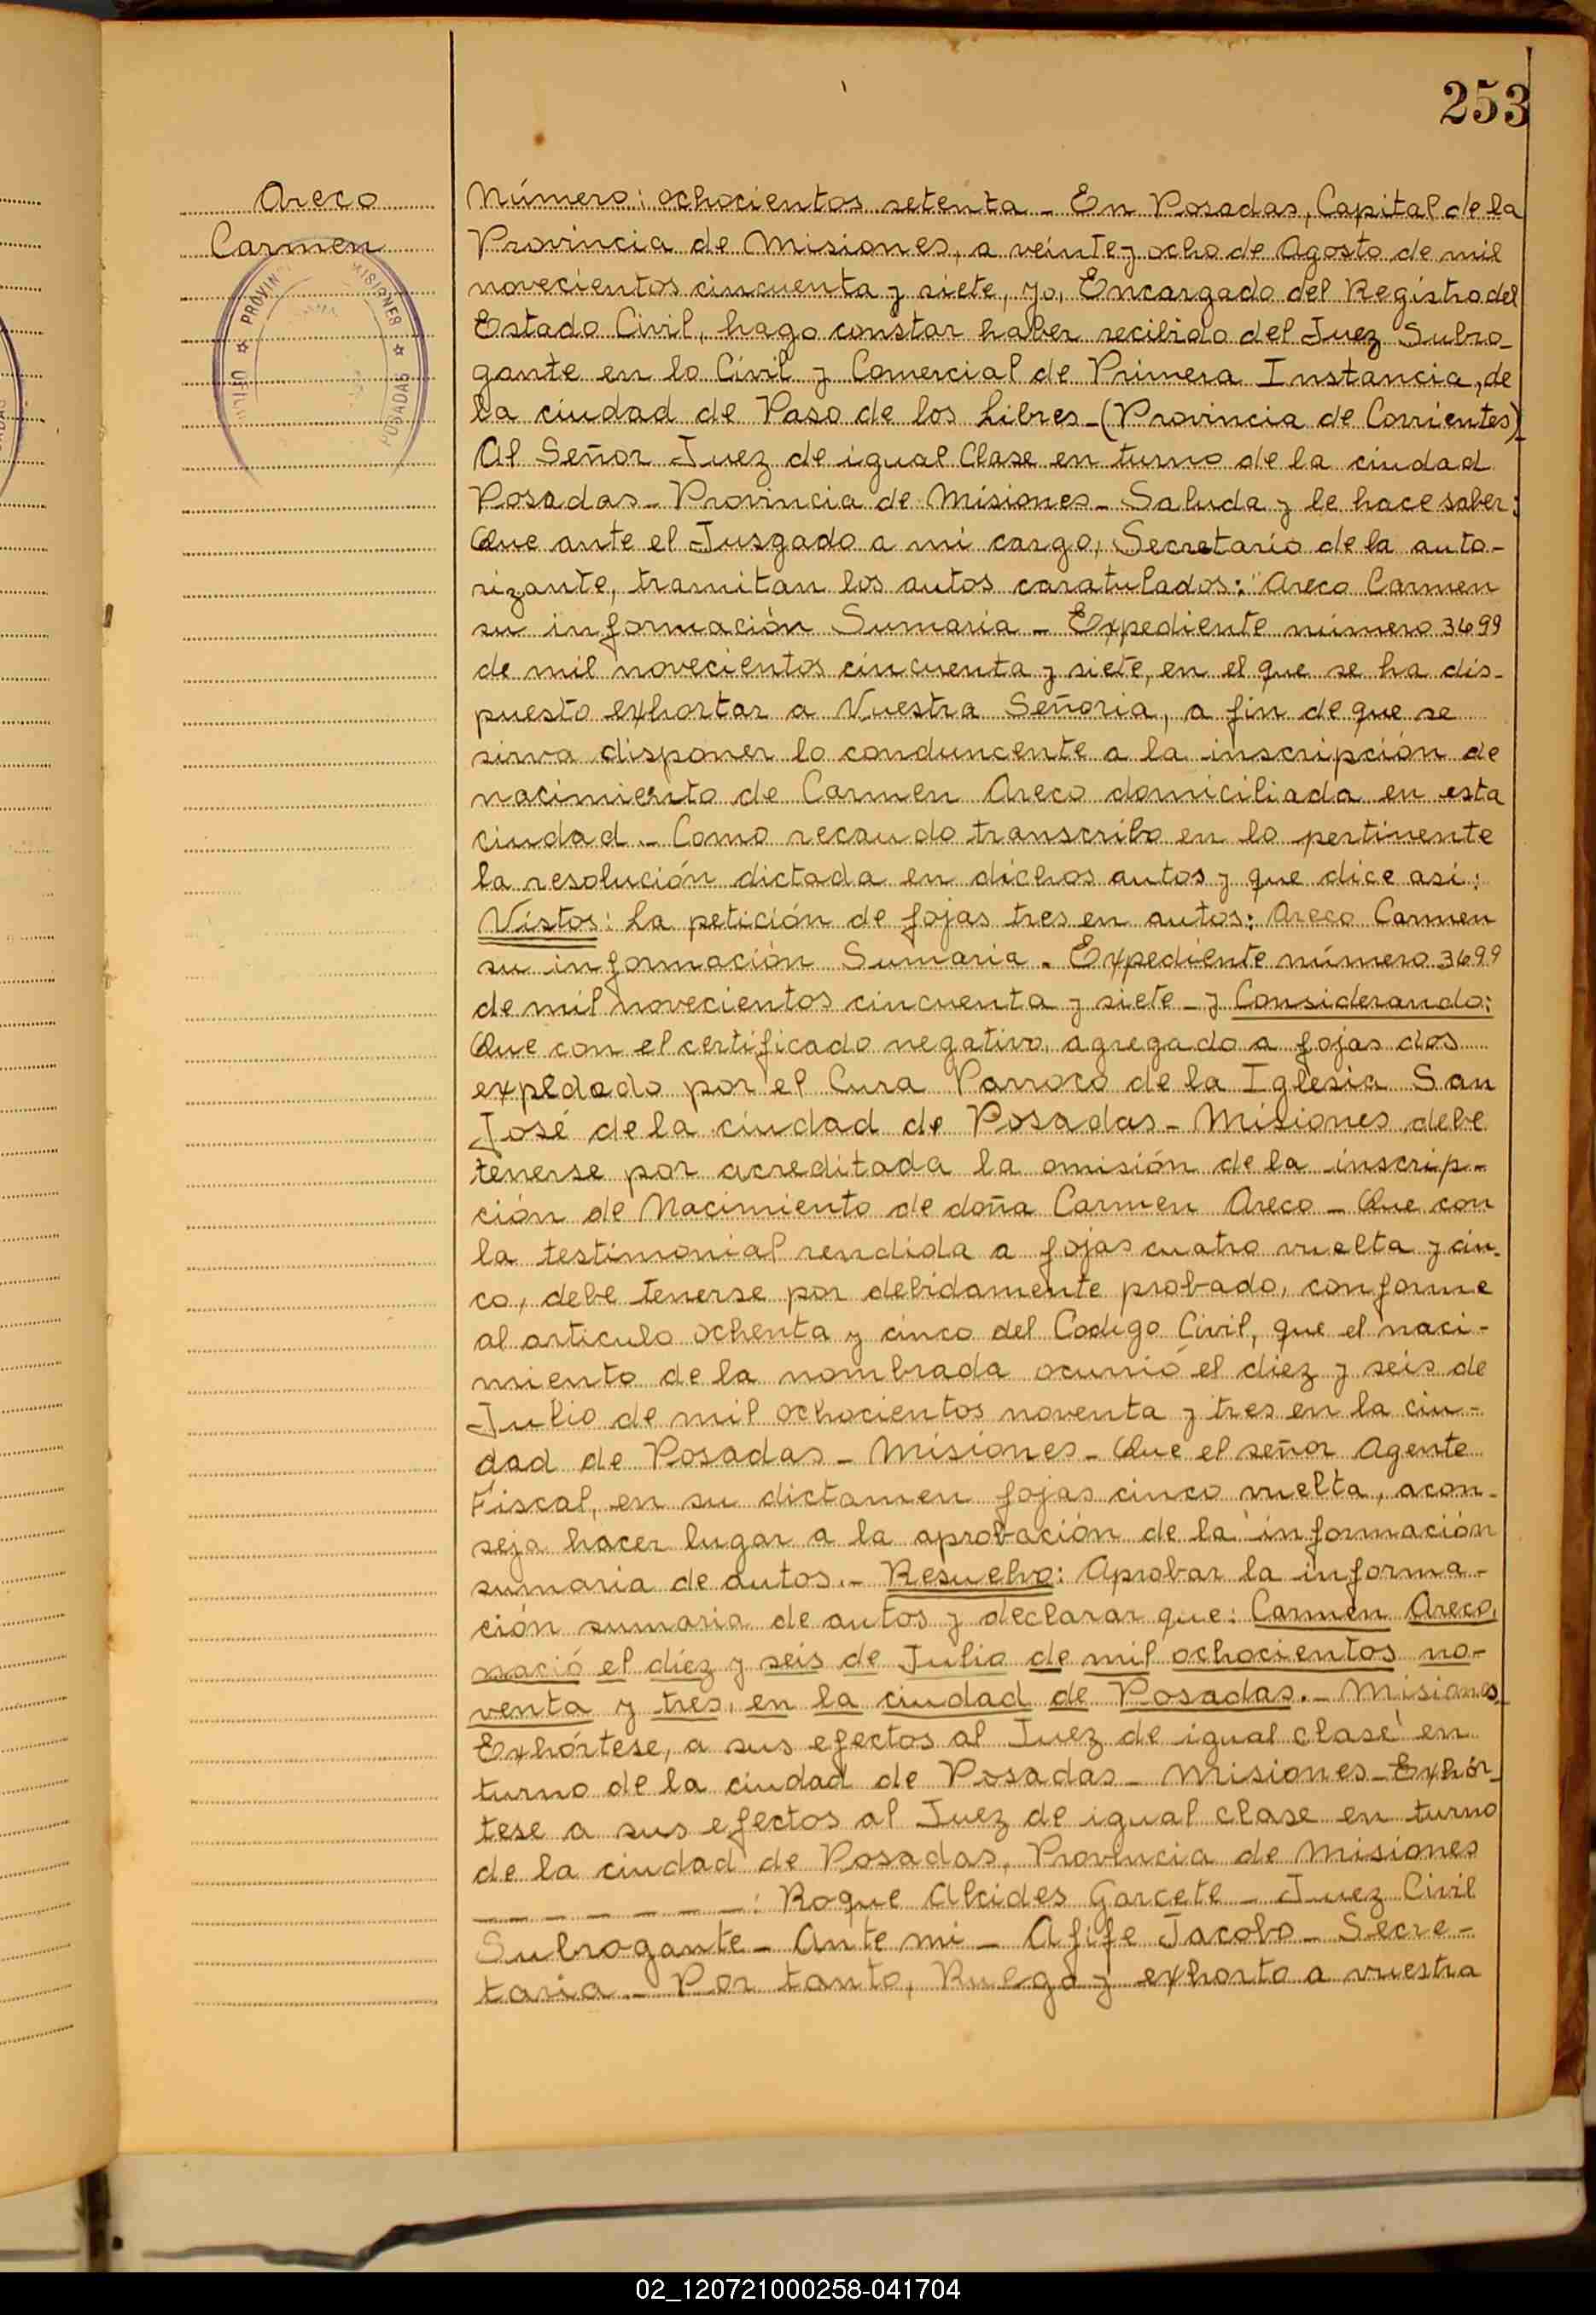 253
Areco
Carmen
PROVIN MISIONES
POSADAS
Número: ochocientos setenta - En Posadas, Capital de la
Provincia de Misiones, a veinte y ocho de Agosto de mil
novecientos cincuenta y siete, yo, Encargado del Registro del
Estado Civil, hago constar haber recibido del Juez Subro-
gante en lo Civil y Comercial de Primera Instancia, de
la ciudad de Paso de los Libres - (Provincia de Corrientes)
Al Señor Juez de igual Clase en turno de la ciudad
Posadas - Provincia de Misiones - Saluda y le hace saber:
Que ante el Jusgado a mi cargo, Secretario de la auto-
rizante, tramitan los autos caratulados: "Areco Carmen
su información Sumaria - Expediente número 3699
de mil novecientos cincuenta y siete, en el que se ha dis-
puesto exhortar a Vuestra Señoria, a fin de que se
sirva disponer lo conduncente a la inscripción de
nacimiento de Carmen Areco domiciliada en esta
ciudad - Como recaudo transcribo en lo pertinente
la resolución dictada en dichos autos y que dice asi:
Vistos: La petición de fojas tres en autos: Areco Carmen
su información Sumaria - Expediente número 3699
de mil novecientos cincuenta y siete - y Considerando:
Que con el certificado negativo, agregado a fojas dos
expldado por el Cura Parroco de la Iglesia San
José de la ciudad de Posadas - Misiones debe
tenerse por acreditada la omisión de la inscrip-
ción de Nacimiento de doña Carmen Areco - Que con
la testimonial rendida a fojas cuatro vuelta y cin-
co, debe tenerse por debidamente probado, conforme
al articulo ochenta y cinco del Codigo Civil, que el naci-
miento de la nombrada ocurrió el diez y seis de
Julio de mil ochocientos noventa y tres en la ciu-
dad de Posadas - Misiones - Que el señor Agente
Fiscal, en su dictamen fojas cinco vuelta, acon-
seja hacer lugar a la aprobación de la información
sumaria de autos. - Resuelvo: Aprobar la informa-
ción sumaria de autos y declarar que: Carmen Areco,
nació el diez y seis de Julio de mil ochocientos no-
venta y tres, en la ciudad de Posadas. - Misiones -
Exhórtese, a sus efectos al Juez de igual clase en
turno de la ciudad de Posadas - Misiones - Exhór-
tese a sus efectos al Juez de igual clase en turno
de la ciudad de Posadas, Provincia de Misiones
- - - - - - - : Roque Alcides Garcete - Juez Civil
Subrogante - Ante mi - Afife Jacobo - Secre-
taria. - Por tanto, Ruego y exhorto a vuestra
02_120721000258-041704